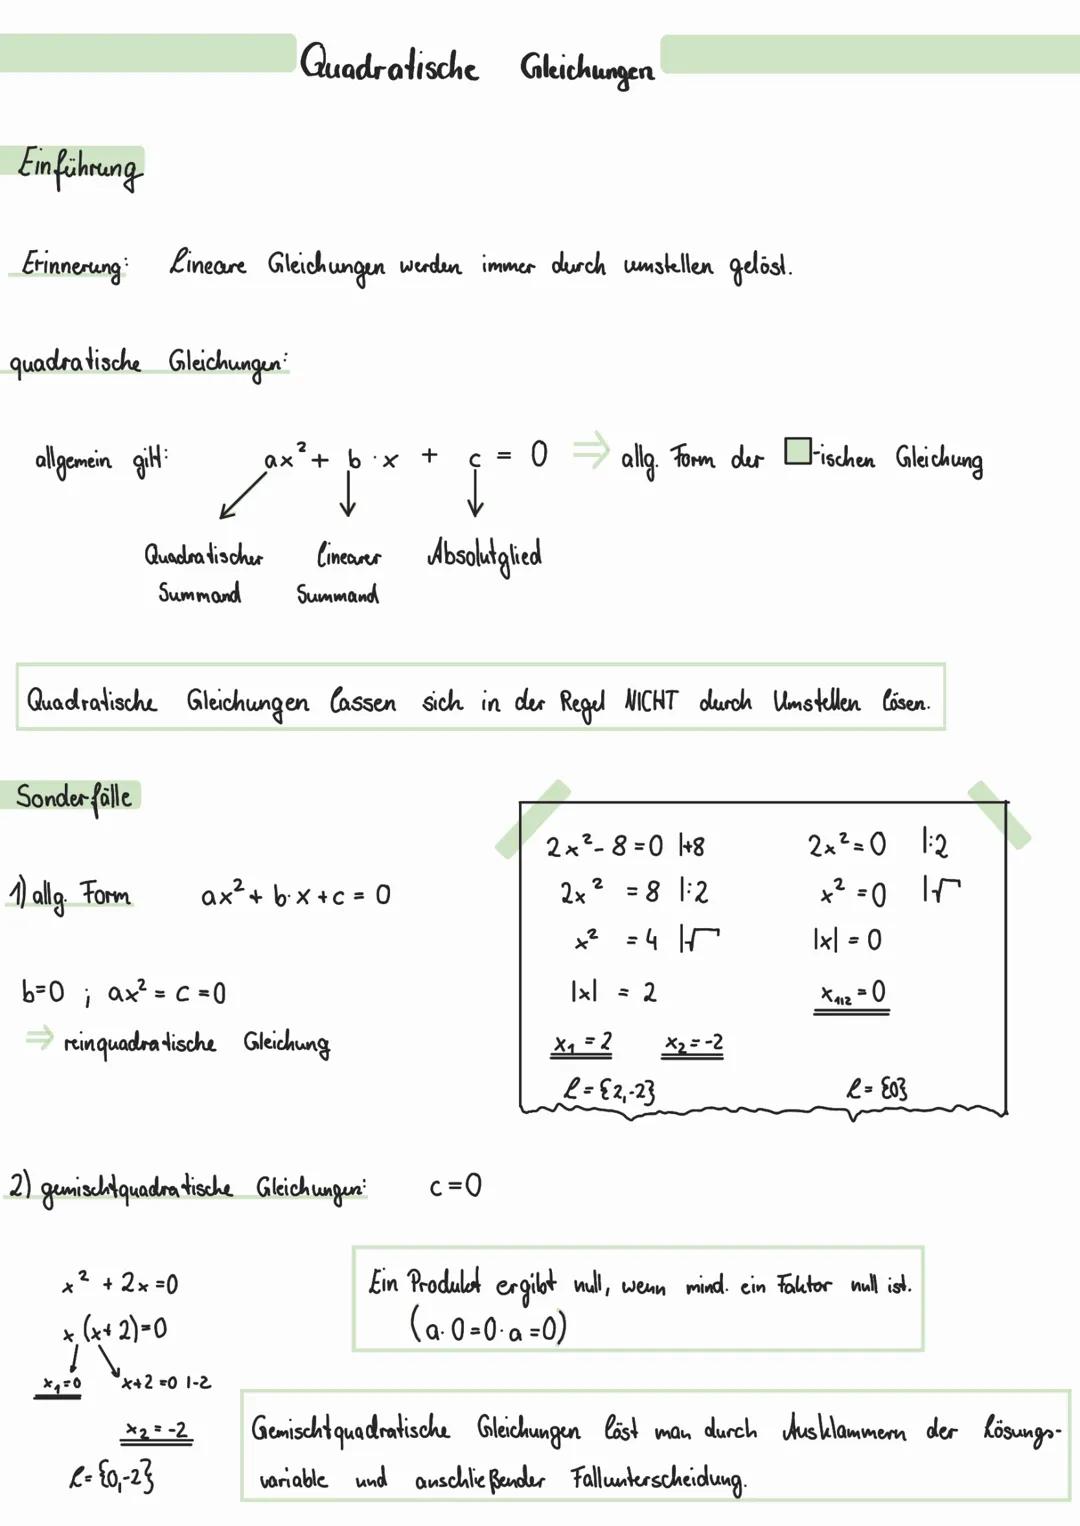 Quadratische Gleichungen
Einführung
Erinnerung: Lineare Gleichungen werden immer durch umstellen gelöst.
quadratische Gleichungen:
allgemein gilt: ax² + b · x + c = 0 ⇒ allg. Form der □-ischen Gleichung
Quadratischer Linearer Absolutglied
Summand Summand
Quadratische Gleichungen lassen sich in der Regel NICHT durch Umstellen lösen.
Sonderfälle
1) allg. Form ax² + b · x + c = 0
b=0 ; ax² = c = 0
⇒ reinquadratische Gleichung
2x² - 8 = 0 |+8
2x² = 8 |:2
x² = 4 |√
|x| = 2
x₁ = 2 x₂ = -2
L = {2,-2}
2x² = 0 |:2
x² = 0 |√
|x| = 0
x₁/₂ = 0
L = {0}
2) gemischtquadratische Gleichungen: c = 0
x² + 2x = 0
x (x + 2) = 0
x₁ = 0 x+2 = 0 |-2
x₂ = -2
L = {0,-2}
Ein Produkt ergibt null, wenn mind. ein Faktor null ist.
(a · 0 = 0 · a = 0)
Gemischtquadratische Gleichungen löst man durch Ausklammern der Lösungs-
variable und anschließender Fallunterscheidung.